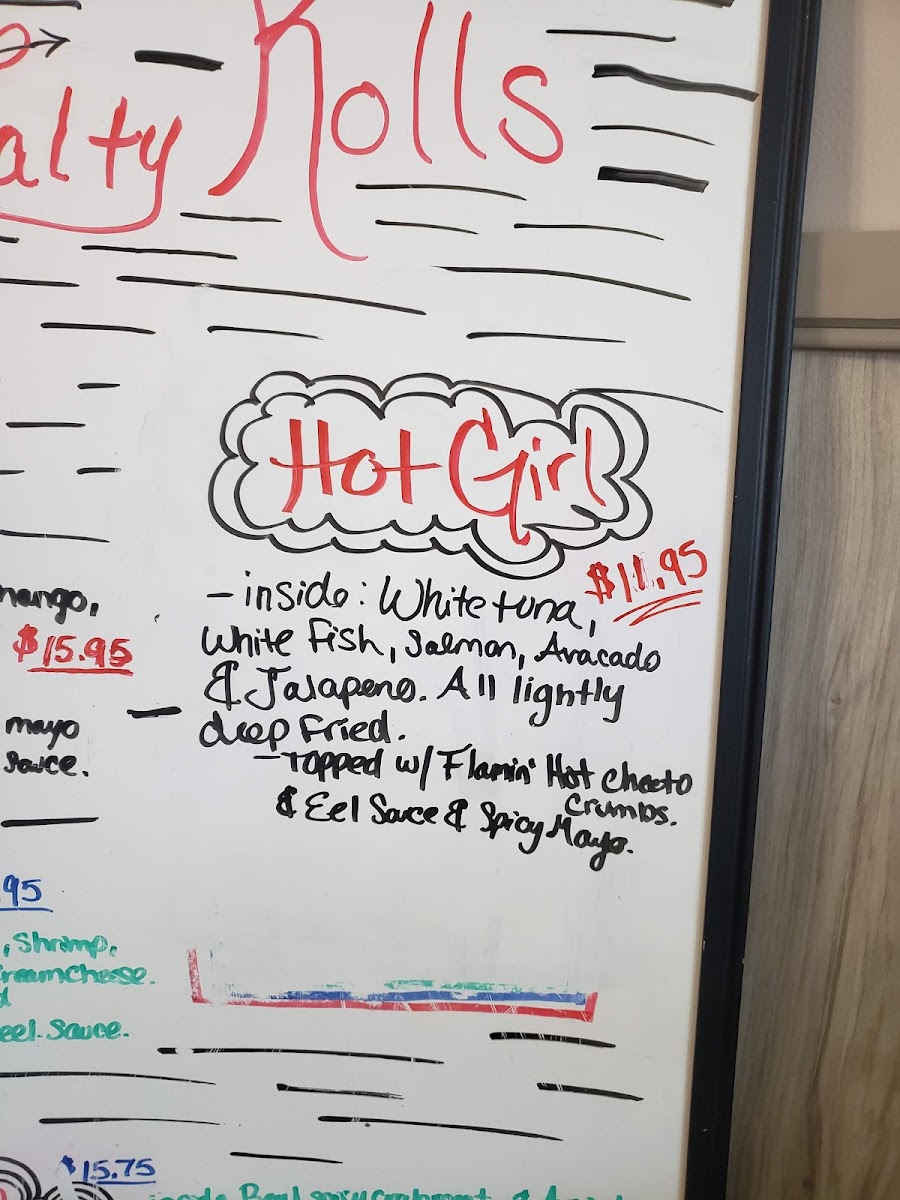 alty Rolls
Hot Girl
$11.95
- inside: White tuna,
White Fish, Salmon, Avacado
& Jalapeno. All lightly
deep fried.
- Topped w/ Flamin' Hot cheeto
crumbs.
& Eel Sauce & Spicy Mayo.
mango,
$15.95
mayo
sauce.
.95
, Shrimp,
reamcheese.
eel sauce.
$15.75